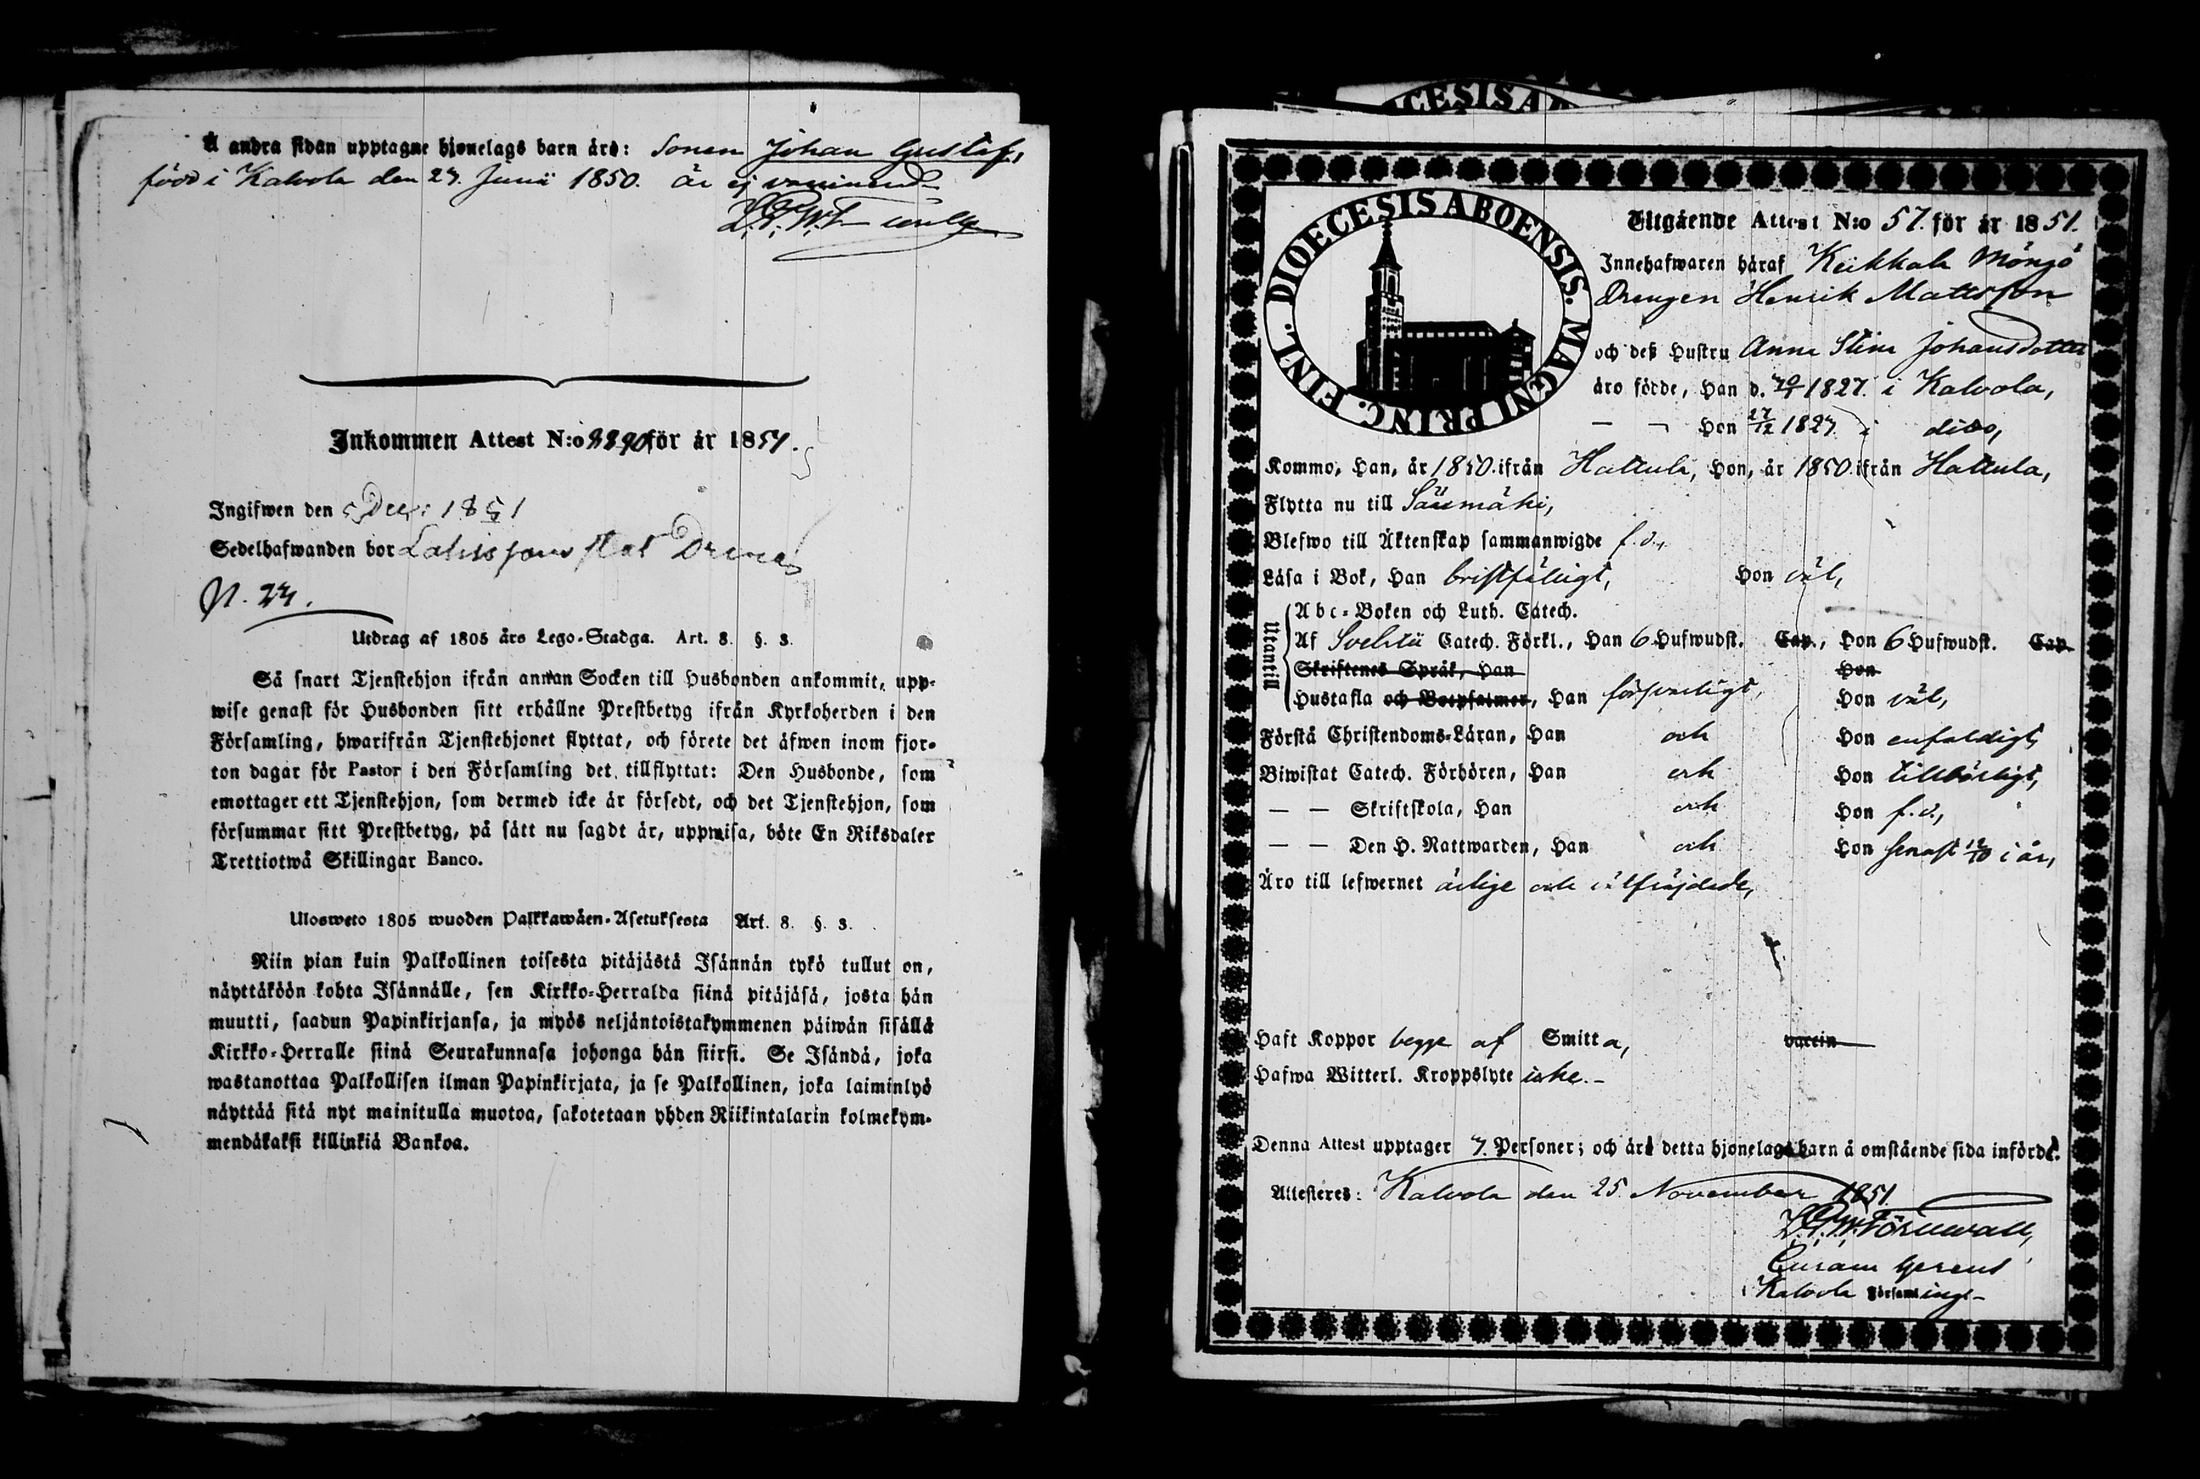 Å andra sidan upptagne hjonelags barn äro: Sonen Johan Gustaf,
född i Kalvola den 27. Junii 1850. är ej vaccinerad
Inkommen Attest N:o 2290 för år 1851.
Ingifwen den 5 Dec: 1851
Sedelhafwanden bor
N. 27.
Utdrag af 1805 års Lego-Stadga. Art. 8. §. 3.
Så snart Tjenstehjon ifrån annan Socken till Husbonden ankommit, upp-
wise genast för Husbonden sitt erhållne Prestbetyg ifrån Kyrkoherden i den
Församling, hwarifrån Tjenstehjonet flyttat, och förete det äfwen inom fjor-
ton dagar för Pastor i den Församling det tillflyttat: Den Husbonde, som
emottager ett Tjenstehjon, som dermed icke är försedt, och det Tjenstehjon, som
försummar sitt Prestbetyg, på sätt nu sagdt är, uppwisa, böte En Riksdaler
Trettiotwå Skillingar Banco.
Ulosweto 1805 wuoden Palkkawäen-Asetuksesta Art. 8. §. 3.
Niin pian kuin Palkollinen toisesta pitäjästä Isännän tykö tullut on,
näyttäköön kohta Isännälle, sen Kirkko-Herralda siinä pitäjäsä, josta hän
muutti, saadun Papinkirjansa, ja myös neljäntoistakymmenen päiwän sisällä
Kirkko-Herralle siinä Seurakunnasa johonga hän siirsi. Se Isändä, joka
wastanottaa Palkollisen ilman Papinkirjata, ja se Palkollinen, joka laiminlyö
näyttää sitä nyt mainitulla muotoa, sakotetaan yhden Riikintalarin kolmekym-
mendäkaksi killinkiä Bankoa.
DIOECESIS ABOENSIS. MAGNI PRINC. FINL.
Utgående Attest N:o 57. för år 1851.
Innehafwaren häraf Keikkala
Drengen Henrik Mattsson
och deß Hustru Anna Stina Johansdotter
äro födde, Han d. 1827. i Kalvola,
— — Hon 27/12 1827 i dito,
Kommo, Han, år 1850. ifrån Hattula, Hon, år 1850. ifrån Hattula,
Flytta nu till Sääxmäki,
Blefwo till Äktenskap sammanwigde f. å.,
Läsa i Bok, Han bristfälligt, Hon väl,
Utantill
Abc-Boken och Luth. Catech.
Af Svebilii Catech. Förkl., Han 6 Hufwudst. Cap., Hon 6 Hufwudst. Cap.
Skriftenes Språk, Han Hon
Hustafla och Botpsalmer, Han försvarligt, Hon väl,
Förstå Christendoms-Läran, Han och Hon enfaldigt,
Biwistat Catech. Förhören, Han och Hon tillbörligt,
— — Skriftskola, Han och Hon f. å.,
— — Den H. Nattwarden, Han och Hon senast 12/10 i år,
Äro till lefwernet ärlige och välfrejdade,
Haft Koppor begge af Smitta, vaccin
Hafwa Witterl. Kroppslyte icke.-
Denna Attest upptager 7. Personer; och äro detta hjonelags barn å omstående sida införde.
Attesteras: Kalvola den 25 November 1851.
Curam Gerens
i Kalvola Församlings-